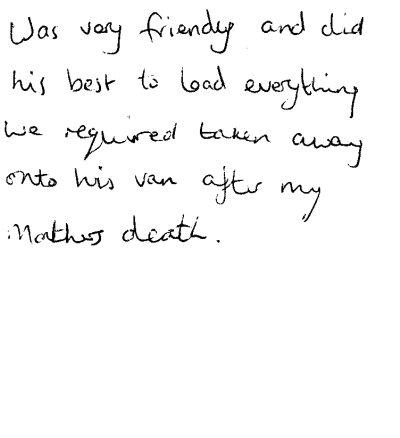 Was very friendly and did
his best to load everything
we required taken away
onto his van after my
Mothers death.